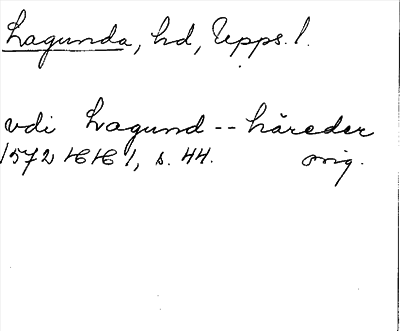 Lagunda, hd, Upps. l.
vdi Lagund -- håreder
1572 HH 1, s. 44. orig.